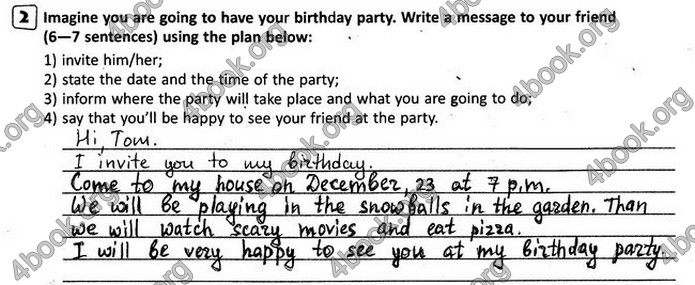 2 Imagine you are going to have your birthday party. Write a message to your friend
(6—7 sentences) using the plan below:
1) invite him/her;
2) state the date and the time of the party;
3) inform where the party will take place and what you are going to do;
4) say that you'll be happy to see your friend at the party.
Hi, Tom.
I invite you to my birthday.
Come to my house on December, 23 at 7 p.m.
We will be playing in the snowballs in the garden. Than
we will watch scary movies and eat pizza.
I will be very happy to see you at my birthday party.
4book.org